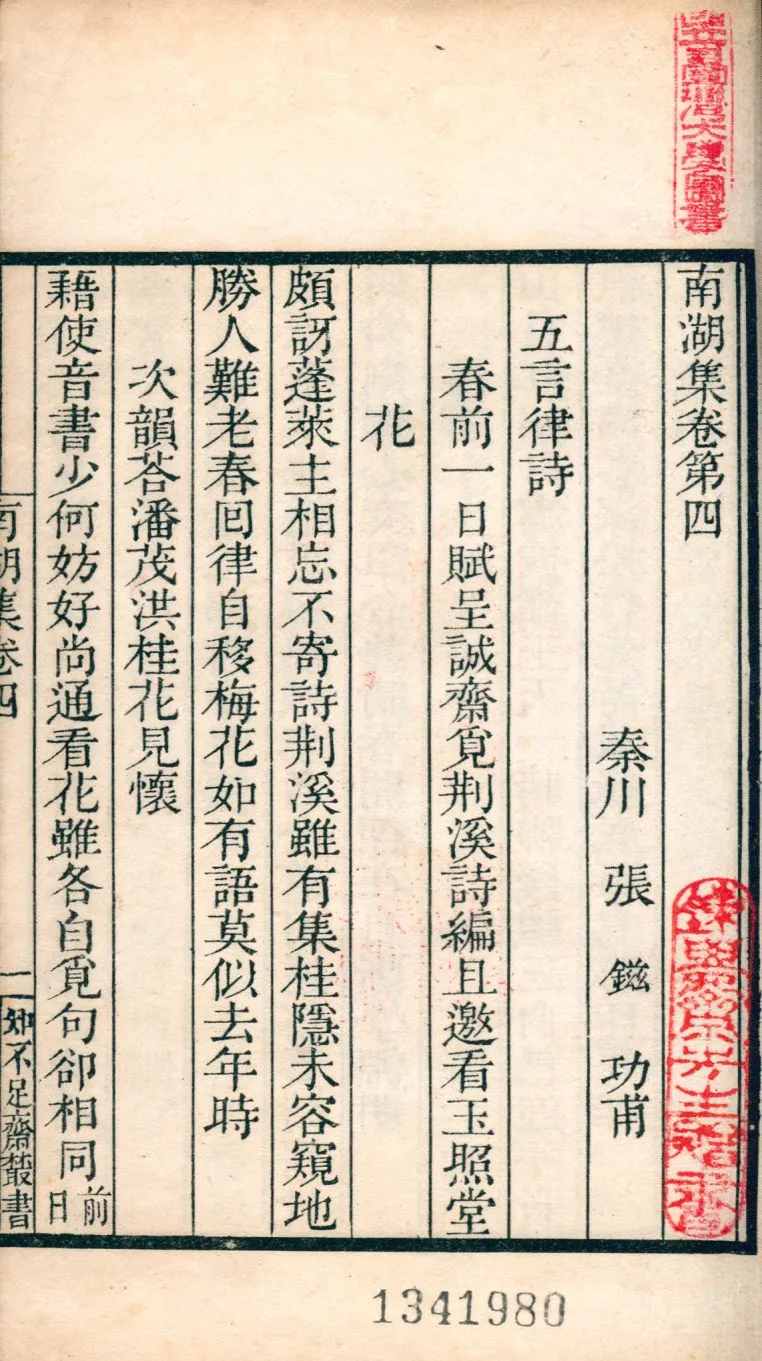 南湖集卷第四
秦川 張 鎡 功甫
五言律詩
春前一日賦呈誠齋覓荆溪詩編且邀看玉照堂
花
頗訝蓬萊主相忘不寄詩荆溪雖有集桂隱未容窺地
勝人難老春回律自移梅花如有語莫似去年時
次韻荅潘茂洪桂花見懷
藉使音書少何妨好尚通看花雖各自覓句卻相同前
日
南湖集卷四
一
知不足齋叢書
1341980